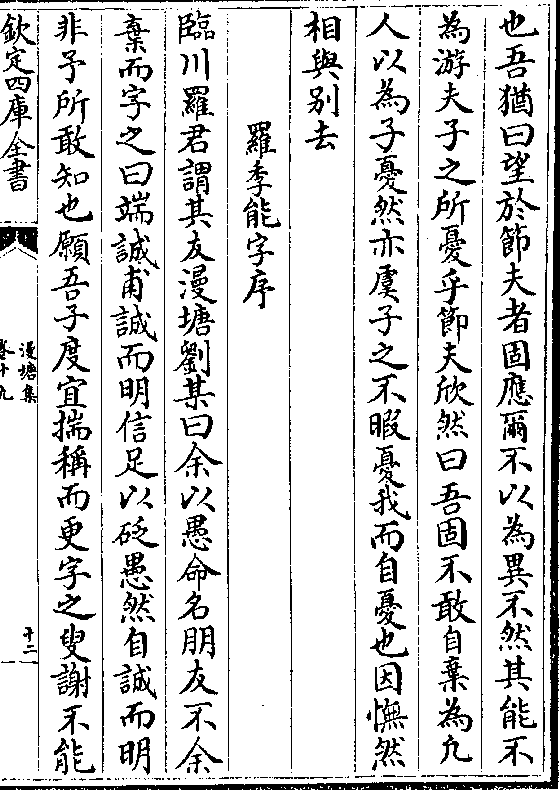 也吾猶曰望於節夫者固應爾不以為異不然其能不
為游夫子之所憂乎節夫欣然曰吾固不敢自棄為凢
人以為子憂然亦虞子之不暇憂我而自憂也因憮然
相與别去
羅季能字序
臨川羅君謂其友漫塘劉某曰余以愚命名朋友不余
棄而字之曰端誠甫誠而明信足以砭愚然自誠而明
非予所敢知也願吾子度宜揣稱而更字之叟謝不能
欽定四庫全書
漫塘集
卷十九
十二